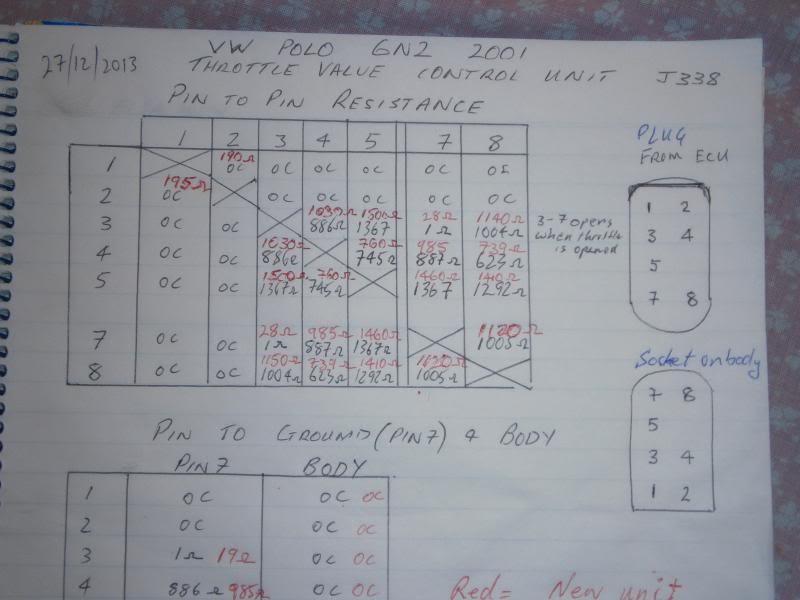 27/12/2013
VW POLO 6N2 2001
THROTTLE VALVE CONTROL UNIT J338
PIN TO PIN RESISTANCE
1 2 3 4 5 7 8
1 190Ω OC OC OC OC OC OC
2 195Ω OC OC OC OC OC OC
3 OC OC 1030Ω 886Ω 1500Ω 1367 28Ω 1Ω 1140Ω 1004Ω
3-7 opens
when throttle
is opened
4 OC OC 1030Ω 886Ω 760Ω 745Ω 985 887Ω 739Ω 623Ω
5 OC OC 1500Ω 1367Ω 760Ω 745Ω 1460Ω 1367 1410Ω 1292Ω
7 OC OC 28Ω 1Ω 985Ω 887Ω 1460Ω 1367Ω 1120Ω 1005Ω
8 OC OC 1150Ω 1004Ω 739Ω 623Ω 1410Ω 1292Ω 1120Ω 1005Ω
PLUG
FROM ECU
1 2
3 4
5
7 8
Socket on body
7 8
5
3 4
1 2
PIN TO GROUND (PIN7) & BODY
PIN7 BODY
1 OC OC OC
2 OC OC OC
3 1Ω 19Ω OC OC
4 886Ω 985Ω OC OC
Red = New unit